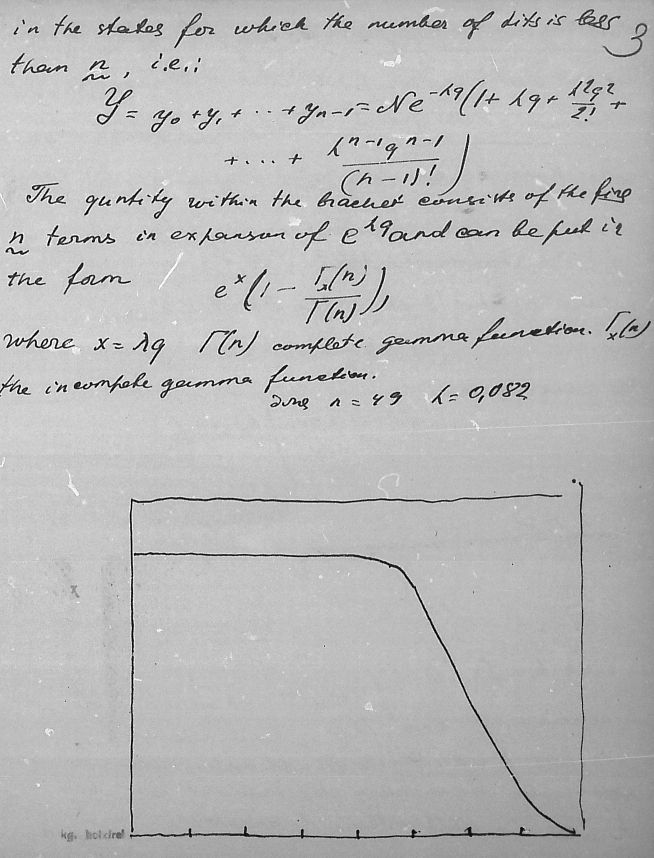 in the states for which the number of dits is less 3
than n, i.e.:
Y = y₀ + y₁ + ... + yₙ₋₁ = Ne^-λq (1 + λq + λ²q²/2! +
+ ... + λ^n-1 q^n-1/(n-1)!)
The quntity within the bracket consists of the first
n terms in expanson of e^λq and can be put in
the form e^x (1 - Γₓ(n)/Γ(n)),
where x = λq Γ(n) complete gamma function. Γₓ(n)
the incomplete gamma function.
n = 49 λ = 0,082
kg.